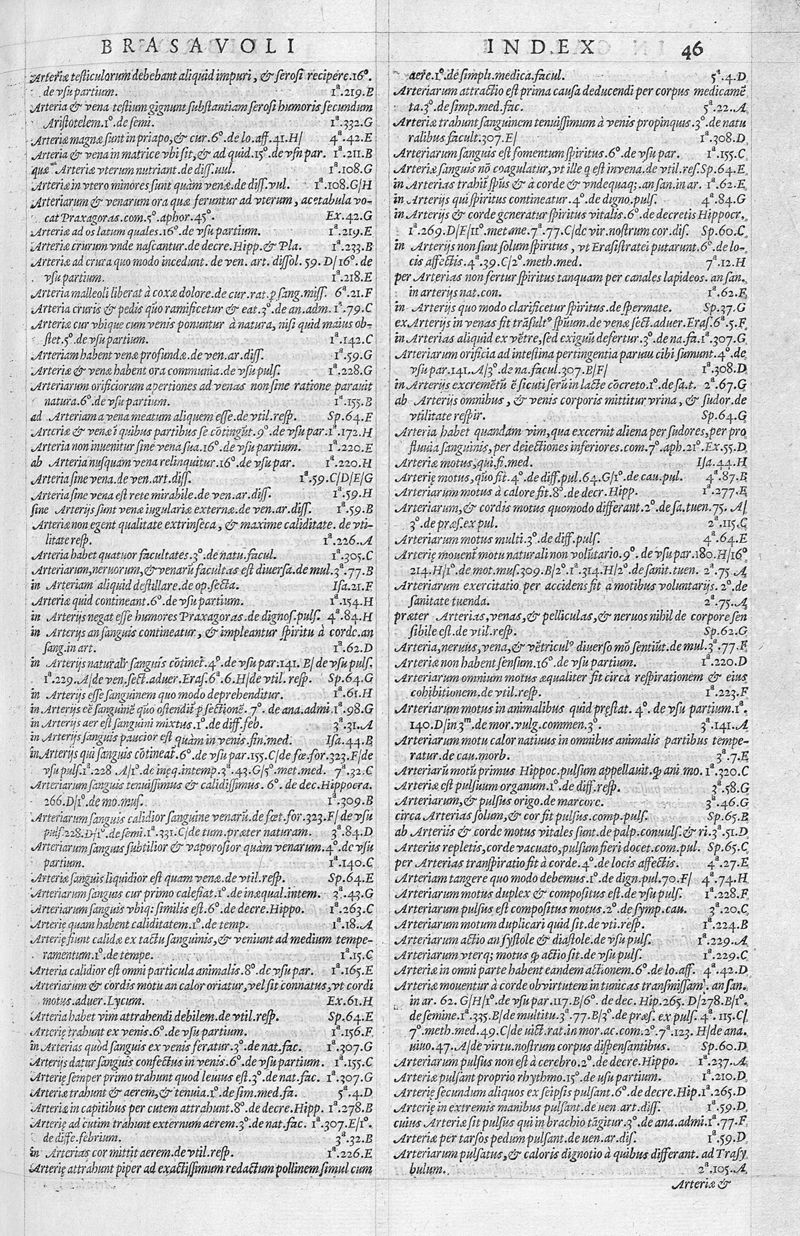 BRASAVOLI
Arteriæ testiculorum debebant aliquid impuri, & serosi recipere.16°.
de vsu partium. 1ª.219.B
Arteria & vena testium gignunt substantiam serosi humoris secundum
Aristotelem.1°.de semi. 1ª.332.G
Arteriæ magnæ sunt in priapo,& cur.6°.de lo.aff.41.H/ 4ª.42.E
Arteria & vena in matrice vbi sit,& ad quid.15°.de vsu par. 1ª.211.B
quæ Arteriæ vterum nutriant.de diss.vul. 1ª.108.G
Arteriæ in vtero minores sunt quàm venæ.de diss.vul. 1ª.108.G/H
Arteriarum & venarum ora quæ feruntur ad vterum, acetabula vo-
cat Praxagoras.com.5°.aphor.45°. Ex.42.G
Arteriæ ad os latum quales.16°.de vsu partium. 1ª.219.E
Arteriæ crurum vnde nascantur.de decre.Hipp.& Pla. 1ª.233.B
Arteriæ ad crura quo modo incedunt.de ven.art.dissol.59.D/16°.de
vsu partium. 1ª.218.E
Arteria malleoli liberat à coxæ dolore.de cur.rat.p sang.miss. 6ª.21.F
Arteria cruris & pedis quo ramificetur & eat.3°.de an.adm. 1ª.79.C
Arteriæ cur vbique cum venis ponuntur à natura, nisi quid maius ob-
stet.5°.de vsu partium. 1ª.142.C
Arteriam habent venæ profundæ.de ven.ar.diss. 1ª.59.G
Arteriæ & venæ habent ora communia.de vsu puls. 1ª.228.G
Arteriarum orificiorum apertiones ad venas non sine ratione parauit
natura.6°.de vsu partium. 1ª.155.B
ad Arteriam a vena meatum aliquem esse.de vtil.resp. Sp.64.E
Arteriæ & venæ ĩ quibus partibus se cõtingũt.9°.de vsu par.1ª.172.H
Arteria non inuenitur sine vena sua.16°.de vsu partium. 1ª.220.E
ab Arteria nusquam vena relinquitur.16°.de vsu par. 1ª.220.H
Arteria sine vena.de ven.art.diss. 1ª.59.C/D/E/G
Arteria sine vena est rete mirabile.de ven.ar.diss. 1ª.59.H
sine Arterijs sunt venæ iugulariæ externæ.de ven.ar.diss. 1ª.59.B
Arteriæ non egent qualitate extrinseca, & maxime caliditate.de vti-
litate resp. 1ª.226.A
Arteria habet quatuor facultates.3°.de natu.facul. 1ª.305.C
Arteriarum,neruorum,& venarũ facultas est diuersa.de mul.3ª.77.B
in Arteriam aliquid destillare.de op.secta. Isa.21.F
Arteriæ quid contineant.6°.de vsu partium. 1ª.154.H
in Arterijs negat esse humores Praxagoras.de dignos.puls. 4ª.84.H
in Arterijs an sanguis contineatur, & impleantur spiritu à corde.an
sang.in art. 1ª.62.D
in Arterijs naturalr̃ sanguis cõtinet᷑.4°.de vsu par.141.B/de vsu puls.
1ª.229.A/de ven.sect.aduer.Eras.6ª.6.H/de vtil.resp. Sp.64.G
in Arterijs esse sanguinem quo modo deprehenditur. 1ª.61.H
in Arterijs eẽ sanguinẽ quo ostendit᷑ p sectionẽ. 7°.de ana.admi.1ª.98.G
in Arterijs aer est sanguini mixtus.1°.de diff.feb. 3ª.31.A
in Arterijs sanguis paucior est quàm in venis.fin.med. Isa.44.B
in Arterijs qui sanguis cõtineat᷑.6°.de vsu par.155.C/de fœ.for.323.F/de
vsu puls.1ª.228.A/1°.de ineq.intemp.3ª.43.G/5°.met.med. 7ª.32.C
Arteriarum sanguis tenuissimus & calidissimus. 6°. de dec.Hippocra.
266.D/1°.de mo.mus. 1ª.309.B
Arteriarum sanguis calidior sanguine venarũ.de fœt.for.323.F/de vsu
puls.228.D/1°.de semi.1ª.331.C/de tum.præter naturam. 3ª.84.D
Arteriarum sanguis subtilior & vaporosior quàm venarum.4°.de vsu
partium. 1ª.140.C
Arteriæ sanguis liquidior est quam venæ.de vtil.resp. Sp.64.E
Arteriarum sanguis cur primo calefiat.1°.de inæqual.intem. 3ª.43.G
Arteriarum sanguis vbiq; similis est.6°.de decre.Hippo. 1ª.263.C
Arterię quam habent caliditatem.1°.de temp. 1ª.18.A
Arterię fiunt calidæ ex tactu sanguinis,& veniunt ad medium tempe-
ramentum.1°.de tempe. 1ª.15.C
Arteria calidior est omni particula animalis.8°.de vsu par. 1ª.165.E
Arteriarum & cordis motu an calor oriatur,vel sit connatus,vt cordi
motus.aduer.Lycum. Ex.61.H
Arteria habet vim attrahendi debilem.de vtil.resp. Sp.64.E
Arterię trahunt ex venis.6°.de vsu partium. 1ª.156.F
in Arterias quòd sanguis ex venis feratur.3°.de nat.fac. 1ª.307.G
Arterijs datur sanguis confectus in venis.6°.de vsu partium. 1ª.155.C
Arterię semper primo trahunt quod leuius est.3°.de nat.fac. 1ª.307.G
Arteriæ trahunt & aerem,& tenuia.1°.de sim.med.fa. 5ª.4.D
Arteriæ in capitibus per cutem attrahunt.8°.de decre.Hipp. 1ª.278.B
Arterię ad cutim trahunt externum aerem.3°.de nat.fac. 1ª.307.E/1°.
de diffe.febrium. 3ª.32.B
in Arterias cor mittit aerem.de vtil.resp. 1ª.226.E
Arterię attrahunt piper ad exactissimum redactum pollinem simul cum
INDEX 46
aere.1°.de simpli.medica.facul. 5ª.4.D
Arteriarum attractio est prima causa deducendi per corpus medicamẽ
ta.3°.de simp.med.fac. 5ª.22.A
Arteriæ trahunt sanguinem tenuissimum à venis propinquis.3°.de natu
ralibus facult.307.E/ 1ª.308.D
Arteriarum sanguis est fomentum spiritus.6°.de vsu par. 1ª.155.C
Arteriæ sanguis nõ coagulatur,vt ille q est in vena.de vtil.res.Sp.64.E
in Arterias trahit᷑ spũs & à corde & vndequaq;.an san.in ar. 1ª.62.E
in Arterijs qui spiritus contineatur.4°.de digno.puls. 4ª.84.G
in Arterijs & corde generatur spiritus vitalis.6°.de decretis Hippocr.
1ª.269.D/E/11°.metane.7ª.77.C/de vir.nostrum cor.dis. Sp.60.C
in Arterijs non sunt solum spiritus, vt Erasistratei putarunt.6°.de lo-
cis affectis.4ª.39.C/2°.meth.med. 7ª.12.H
per Arterias non fertur spiritus tanquam per canales lapideos. an san.
in arterijs nat.con. 1ª.62.F
in Arterijs quo modo clarificetur spiritus.de spermate. Sp.37.G
ex Arterijs in venas fit trãsult° spũum.de venæ sect.aduer.Eras.6ª.5.F
in Arterias aliquid ex vẽtre,sed exiguũ defertur.3°.de na.fa.1ª.307.G
Arteriarum orificia ad intestina pertingentia paruæ cibi sumunt.4°.de
vsu par.141.A/3°.de na.facul.307.E/F/ 1ª.308.D
in Arterijs excremẽtũ ẽ sicuti serũ in lacte cõcreto.1°.de sa.t. 2ª.67.G
ab Arterijs omnibus, & venis corporis mittitur vrina, & sudor.de
vtilitate respir. Sp.64.G
Arteria habet quandam vim,qua excernit aliena per sudores,per pro
fluuia sanguinis,per deiectiones inferiores.com.7°.aph.21°.Ex.55.D
Arteriæ motus,qui.fi.med. Isa.44.H
Arterię motus,quo fit.4°.de diff.pul.64.G/1°.de cau.pul. 4ª.87.B
Arteriarum motus à calore fit.8°.de decr.Hipp. 1ª.277.E
Arteriarum,& cordis motus quomodo differant.2°.de sa.tuen.75.A/
3°.de præs.ex pul. 2ª.115.C
Arteriarum motus multi.3°.de diff.puls. 4ª.64.E
Arterię mouent᷑ motu naturali non volũtario.9°.de vsu par.180.H/16°
214.H/1°.de mot.mus.309.B/2°.1ª.314.H/2°.de sanit.tuen. 2ª.75.A
Arteriarum exercitatio per accidens fit a motibus voluntarijs.2°.de
sanitate tuenda. 2ª.75.A
præter Arterias,venas,& pelliculas,& neruos nihil de corpore sen
sibile est.de vtil.resp. Sp.62.G
Arteria,neruus,vena,& vẽtricul° diuerso mõ sentiũt.de mul.3ª.77.E
Arteriæ non habent sensum.16°.de vsu partium. 1ª.220.D
Arteriarum omnium motus æqualiter fit circa respirationem & eius
cohibitionem.de vtil.resp. 1ª.223.F
Arteriarum motus in animalibus quid præstat. 4°. de vsu partium.1ª.
140.D/in 3ᵐ.de mor.vulg.commen.3°. 3ª.141.A
Arteriarum motu calor natiuus in omnibus animalis partibus tempe-
ratur.de cau.morb. 3ª.7.E
Arteriarũ motũ primus Hippoc.pulsum appellauit.ꝙ ani mo. 1ª.320.C
Arteriæ est pulsuum organum.1°.de diff.resp. 3ª.58.G
Arteriarum,& pulsus origo.de marcore. 3ª.46.G
circa Arterias solum,& cor fit pulsus.comp.puls. Sp.65.B
ab Arterijs & corde motus vitales sunt.de palp.conuuls.& ri.3ª.51.D
Arterijs repletis,corde vacuato,pulsum fieri docet.com.pul. Sp.65.C
per Arterias transpiratio fit à corde.4°.de locis affectis. 4ª.27.E
Arteriam tangere quo modo debemus.1°.de dign.pul.70.F/ 4ª.74.H
Arteriarum motus duplex & compositus est.de vsu puls. 1ª.228.F
Arteriarum pulsus est compositus motus.2°.de symp.cau. 3ª.20.C
Arteriarum motum duplicari quid sit.de vti.resp. 1ª.224.B
Arteriarum actio an systole & diastole.de vsu puls. 1ª.229.A
Arteriarum vterq; motus ꝙ actio sit.de vsu puls. 1ª.229.C
Arteriæ in omni parte habent eandem actionem.6°.de lo.aff. 4ª.42.D
Arteriæ mouentur à corde ob virtutem in tunicas transmissam. an san.
in ar. 62. G/H/1°.de vsu par.117.B/6°. de dec. Hip.265. D/278.B/1°.
de semine.1ª.335.B/de multitu.3ª.77.B/3°.de præs. ex puls. 4ª.115.C/
7°.meth.med.49.C/de uict.rat.in mor.ac.com.2°.7ª.123. H/de ana.
uiuo.47.A/de virtu.nostrum corpus dispensantibus. Sp.60.D
Arteriarum pulsus non est à cerebro.2°.de decre.Hippo. 1ª.237.A
Arteriæ pulsant proprio rhythmo.15°.de vsu partium. 1ª.210.D
Arterię secundum aliquos ex seipsis pulsant.6°.de decre.Hip.1ª.265.D
Arterię in extremis manibus pulsant.de uen.art.diss. 1ª.59.D
cuius Arteriæ sit pulsus qui in brachio tãgitur.3°.de ana.admi.1ª.77.F
Arteriæ per tarsos pedum pulsant.de uen.ar.dis. 1ª.59.D
Arteriarum pulsatus,& caloris dignotio à quibus differant. ad Trasy
bulum. 2ª.105.A
Arteriæ &